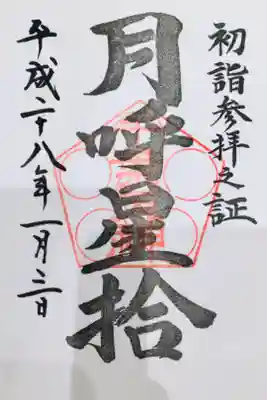 初詣参拝之証
月呼星拾
平成二十八年一月三日